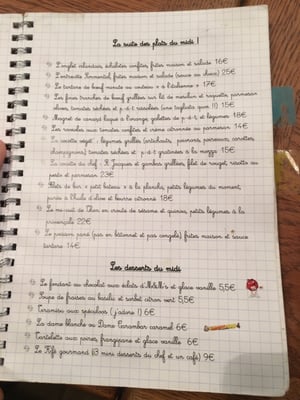 La suite des plats du midi !
L'onglet échalotes, échalotes confites, frites maison et salade 16€
L'entrecôte Simmental, frites maison et salade (sauce au choix) 25€
Le tartare de bœuf minute au couteau « à l'italienne » 17€
Les fines tranches de bœuf grillées sur lit de mesclun et roquette, parmesan
olives, tomates séchées et p-d-t rissolées (une tagliata quoi !!) 15€
Magret de canard laqué à l'orange, galettes de p-d-t, et légumes 18€
Les ravioles aux tomates confites et crème citronnée au parmesan 14€
La cocotte végét' : légumes grillés (artichauts, poivrons, carottes,
champignons) tomates séchées et p-d-t gratinées à la mozza 15€
La cocotte du chef : St Jacques et gambas grillées, filet de rouget, risotto au
pesto et parmesan 23€
Filets de bar « petit bateau » à la plancha, petits légumes du moment,
purée à l'huile d'olive et beurre citronné 18€
Le mi-cuit de Thon en croûte de sésame et quinoa, petits légumes à la
provençale 22€
Le poisson pané (pas en bâtonnet et pas congelé) frites maison et sauce
tartare 14€
Les desserts du midi
Le fondant au chocolat aux éclats d'M&M's et glace vanille 5,5€
Soupe de fraises au basilic et sorbet citron vert 5,5€
Tiramisu aux spéculoos (j'adore !) 6€
La dame blanche ou Dame Carambar caramel 6€
Tartelette aux poires, frangipane et glace vanille 6€
Le Kfé gourmand (3 mini desserts du chef et un café) 9€